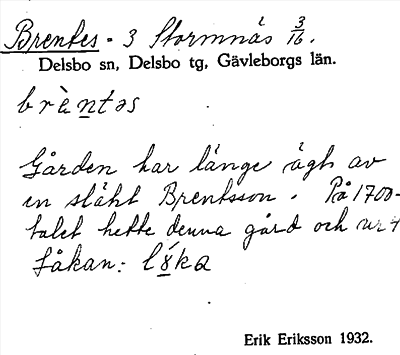 Brentes - 3 Stormnäs 3/16.
Delsbo sn, Delsbo tg, Gävleborgs län.
brè̀ntəs
Gården har länge ägts av
en släkt Brentsson. På 1700-
talet hette denna gård och nr 4
Låkan:
Erik Eriksson 1932.